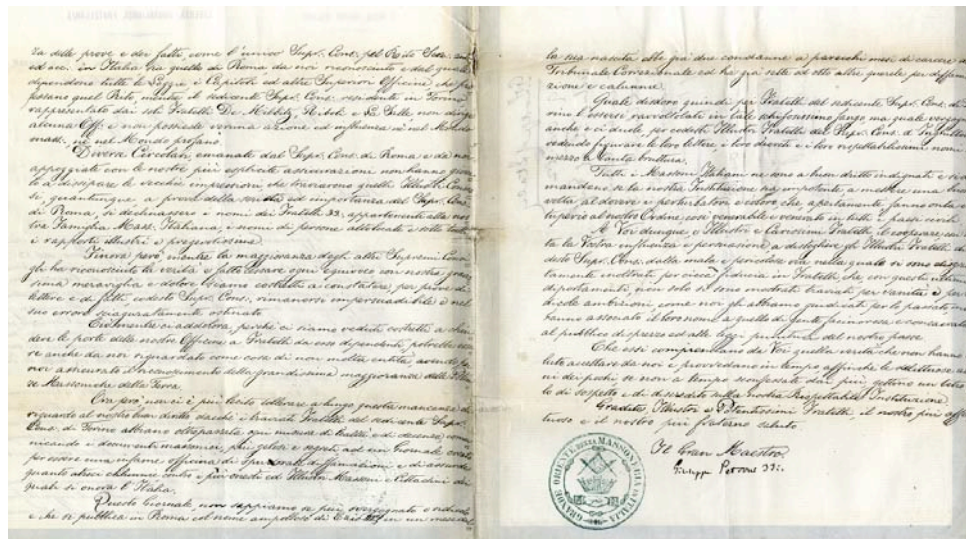 za delle prove e dei fatti, come l'unico Supr. Cons. pel Rito Scoz.
ed acc. in Italia sia quello di Roma da noi riconosciuto e dal quale
dipendono tutte le Logge, i Capitoli ed altre Superiori Officine, che pro-
fessano quel Rito mentre il sedicente Supr. Cons. residente in Torino
rappresentato dai soli Fratelli De Milbitz, Riboli e La Salle non dirige
alcuna Off. e non possiede veruna azione ed influenza nè nel Mondo
mass. nè nel Mondo profano.
Diverse Circolari, emanate dal Supr. Cons. di Roma e da noi
appoggiate con le nostre più esplicite assicurazioni non hanno
a dissipare le vecchie impressioni che
se, quantunque, a prova della serietà ed importanza del Supr. Cons.
di Roma, si declinassero i nomi dei Fratelli 33. appartenenti alla nos-
tra Famiglia Mass. Italiana, i nomi di persone altolocate e sotto tutti
i rapporti illustri e
Finora però, mentre la maggioranza degli altri Supremi Consi-
gli ha riconosciuto la verità e fatto cessare ogni equivoco con nostra gravis-
sima meraviglia e dolore siamo costretti a constatare, per prove di
lettere e di fatti codesto Supr. Cons. rimanersi impersuadibile e nel
suo errore sciaguratamente ostinato.
Ciò mentre ci addolora, perchè ci siamo veduti costretti a chiu-
dere le porte delle nostre Officine a Fratelli da esso dipendenti, potrebbe esse-
re anche da noi riguardato come cosa di non molta entità, avendo
noi assicurato il riconoscimento della grandissima maggioranza delle
ze Massoniche della Terra.
Ora però non ci è più lecito tollerare a lungo questa mancanza di
riguardo al nostro buon diritto dacchè i traviati Fratelli del sedicente Supr.
Cons. di Torino abbiano oltrepassata ogni misura di lealtà e di decenza comu-
nicando i documenti massonici, più gelosi e segreti ad un Giornale creato
per essere una infame officina di spudorate diffamazioni e di assurde
quanto atroci calunnie contro i più onesti ed Illustri Massoni e Cittadini dei
quali si onora l'Italia.
Questo Giornale, non sappiamo se più svergognato o ridicolo
e che si pubblica in Roma col nome ampolloso di in un
la sua nascita ebbe già due condanne a parecchi mesi di carcere dal
Tribunale Correzionale ed ha già sette od otto altre querele per diffama-
zione e calunnie.
Quale disdoro quindi per Fratelli del sedicente Supr. Cons. di To-
rino l'essersi ravvoltolati in tale schifosissimo fango ma quale vergogna
anche e ci duole, per codesti Illustri Fratelli del Supr. Cons. d'Inghilterra
vedendo figurare le loro lettere i loro decreti e i loro rispettabilissimi nomi
in mezzo a tanta bruttura.
Tutti i Massoni Italiani ne sono a buon dritto indignati e si do-
mandano se la nostra Instituzione sia impotente a mettere una buona
volta al dovere i perturbatori e coloro che apertamente, fanno onta e
vituperio al nostro Ordine così venerabile e venerato in tutti i paesi civili
A Voi dunque o Illustri e Carissimi Fratelli il cooperare con
la Vostra influenza e persuasione a distogliere gli Illustri Fratelli di co-
desto Supr. Cons. dalla mala e pericolosa via nella quale si sono disgra-
tamente inoltrati per cieca fiducia in Fratelli che, con questi ultimi
diportamenti, non solo si sono mostrati traviati per vanità e per ri-
dicole ambizioni come noi gli abbiamo giudicati per lo passato ma
hanno associato il loro nome a quello di gente facinorosa e consacrata
al pubblico disprezzo ed alle leggi punitive del nostro paese
Che essi comprendano da Voi quella verità che non hanno vo-
luto accettare da noi e provvedano in tempo affinchè le
ni dei pochi se non a tempo sconfessate dai più, gettino un'ombra
di sospetto e di discredito sulla nostra Rispettabile Instituzione.
Gradite, Illustri e Potentissimi Fratelli, il nostro più affet-
tuoso e il nostro più fraterno saluto.
Il Gran Maestro
Giuseppe Petroni 33.
GRANDE ORIENTE DELLA MASSONERIA IN ITALIA